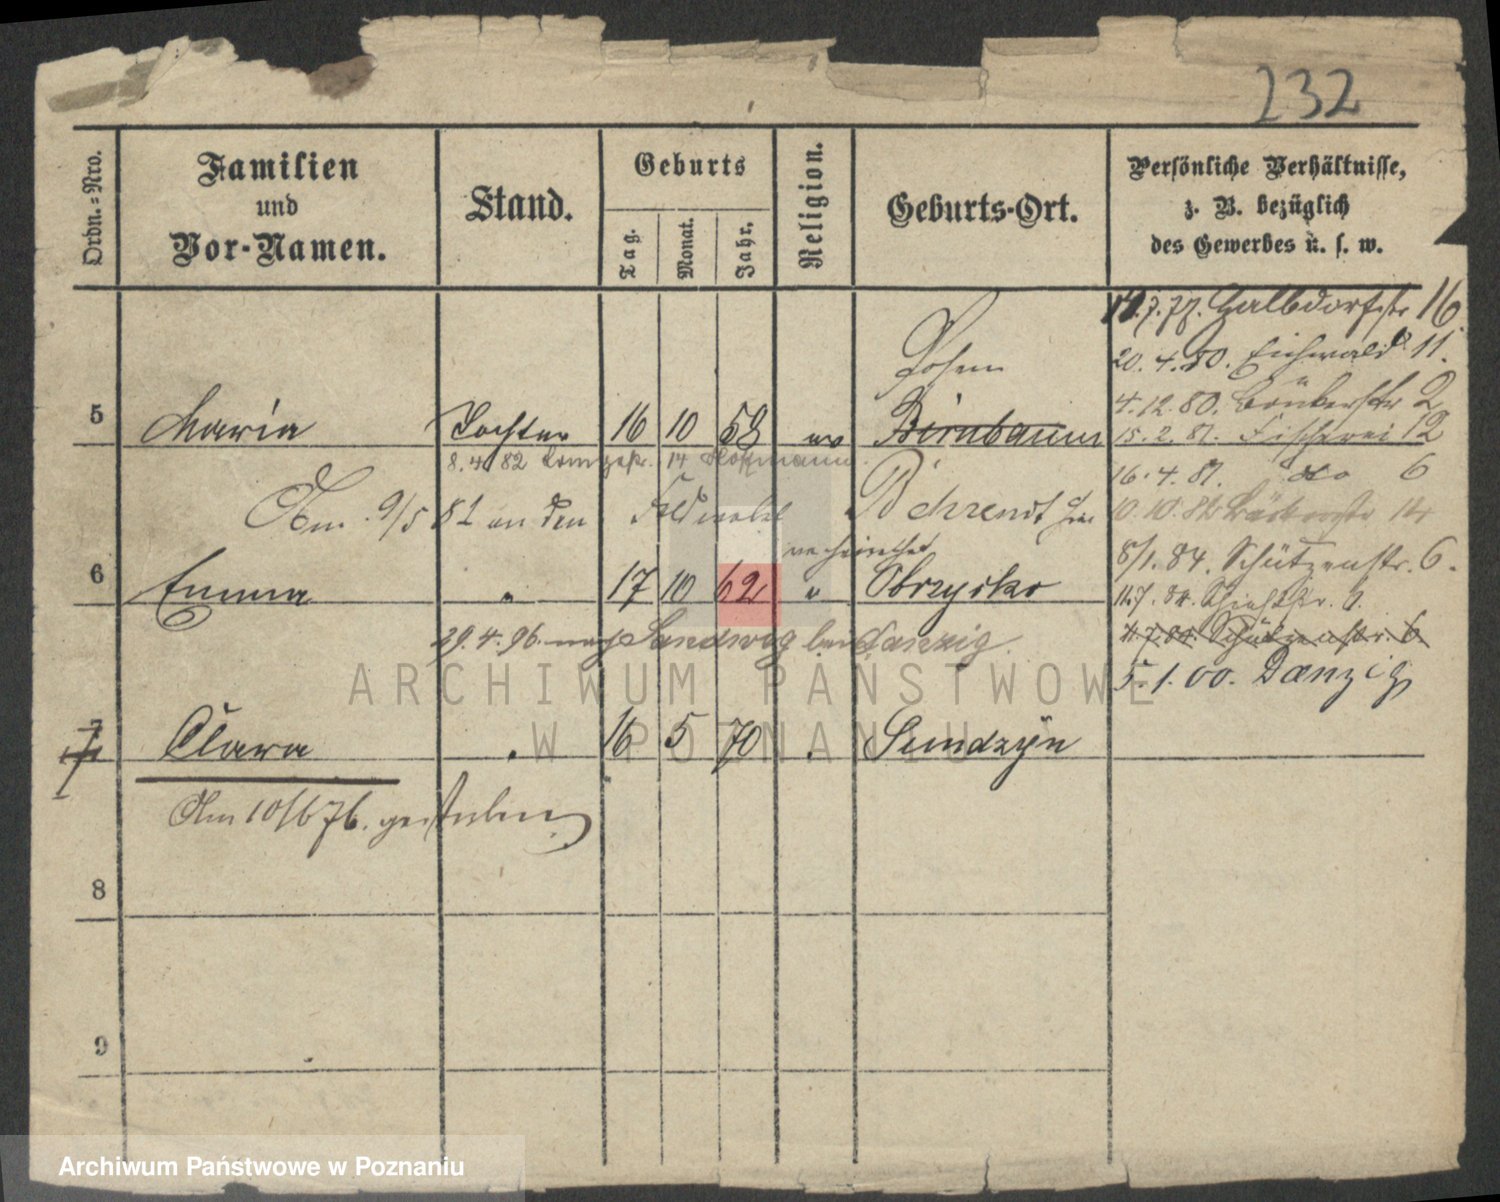 232
Ordn.=Nro.
Familien
und
Vor-Namen.
Stand.
Geburts
Tag.
Monat.
Jahr.
Religion.
Geburts-Ort.
Persönliche Verhältnisse,
z. B. bezüglich
des Gewerbes u. s. w.
14.7.77. Halbdorfstr 16
20.4.80. Eichwald 11.
4.12.80. 2
15.2.81. Fischerei 12
5 Maria Tochter 16 10 58 ev Birnbaum
8.4.82 14 Hoffmann
16.4.81. do 6
Am 9/5 82 an den Feldwebel Behrendt
10.10.82 14
verheirathet
8/1.84. Schützenstr. 6.
6 Emma " 17 10 62 " Obrzycko
11.7.84. 6.
29.4.96. nach bei Danzig.
11.7.84. Schützenstr. 6
5.1.00. Danzig
7 Clara " 16 5 70 "
Am 10/6 76. gestorben
8
9
ARCHIWUM PAŃSTWOWE
W POZNANIU
Archiwum Państwowe w Poznaniu